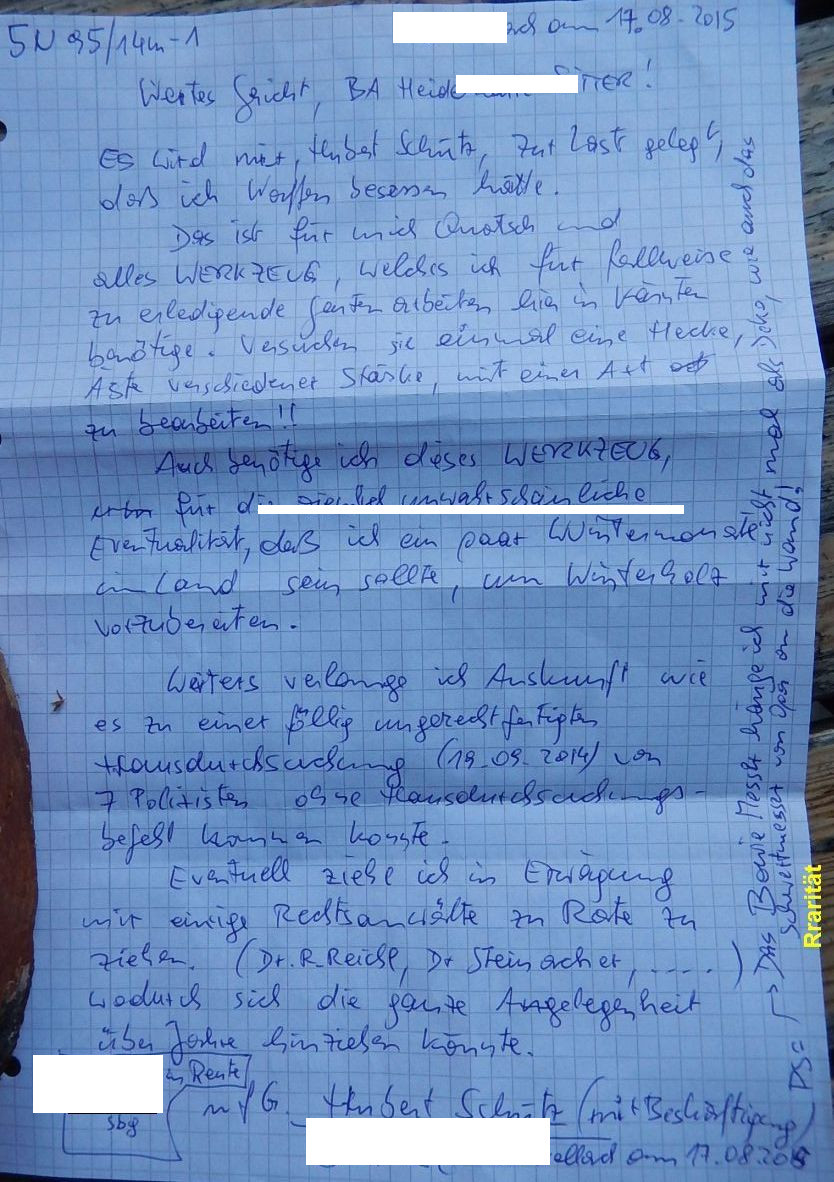 5N 95/14m-1
am 17.08.2015
Wertes Gericht, BA Heide TTER!
ES wird mir, Hubert Schütz, zur Last gelegt,
daß ich Waffen besessen hätte.
Das ist für mich Quatsch und
alles WERKZEUG, welches ich für fallweise
zu erledigende Gartenarbeiten hier in Kärnten
benötige. Versuchen sie einmal eine Hecke,
Äste verschiedener Stärke, mit einer Axt
zu bearbeiten!!
Auch benötige ich dieses WERKZEUG,
für die ziemlich unwahrscheinliche
Eventualität, daß ich ein paar Wintermonate
im Land sein sollte, um Winterholz
vorzubereiten.
Weiters verlange ich Auskunft wie
es zu einer föllig ungerechtfertigten
Hausdurchsuchung (19.09.2014) von
7 Polizisten ohne Hausdurchsuchungs-
befehl kommen konnte.
Eventuell ziehe ich in Erwägung
mir einige Rechtsanwälte zu Rate zu
ziehen. (Dr. R. Reichl, Dr Steinacher, .....)
wodurch sich die ganze Angelegenheit
über Jahre hinziehen könnte.
in Rente
sbg
mfG. Hubert Schütz (mit Beschäftigung)
ellach am 17.08.2015
PS= Das Bowie Messer hänge ich mir nicht mal als Deko, wie auch das
Schwertmesser von Opa an die Wand!
Rrarität